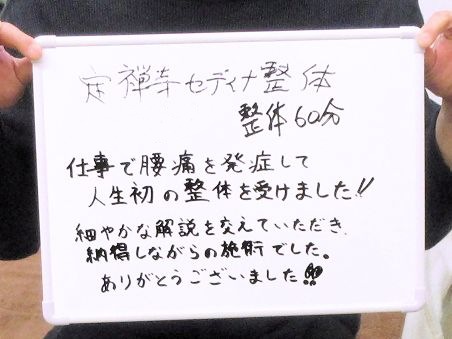 定禅寺セディナ整体
整体60分
仕事で腰痛を発症して
人生初の整体を受けました!!
細やかな解説を交えていただき、
納得しながらの施術でした。
ありがとうございました!!